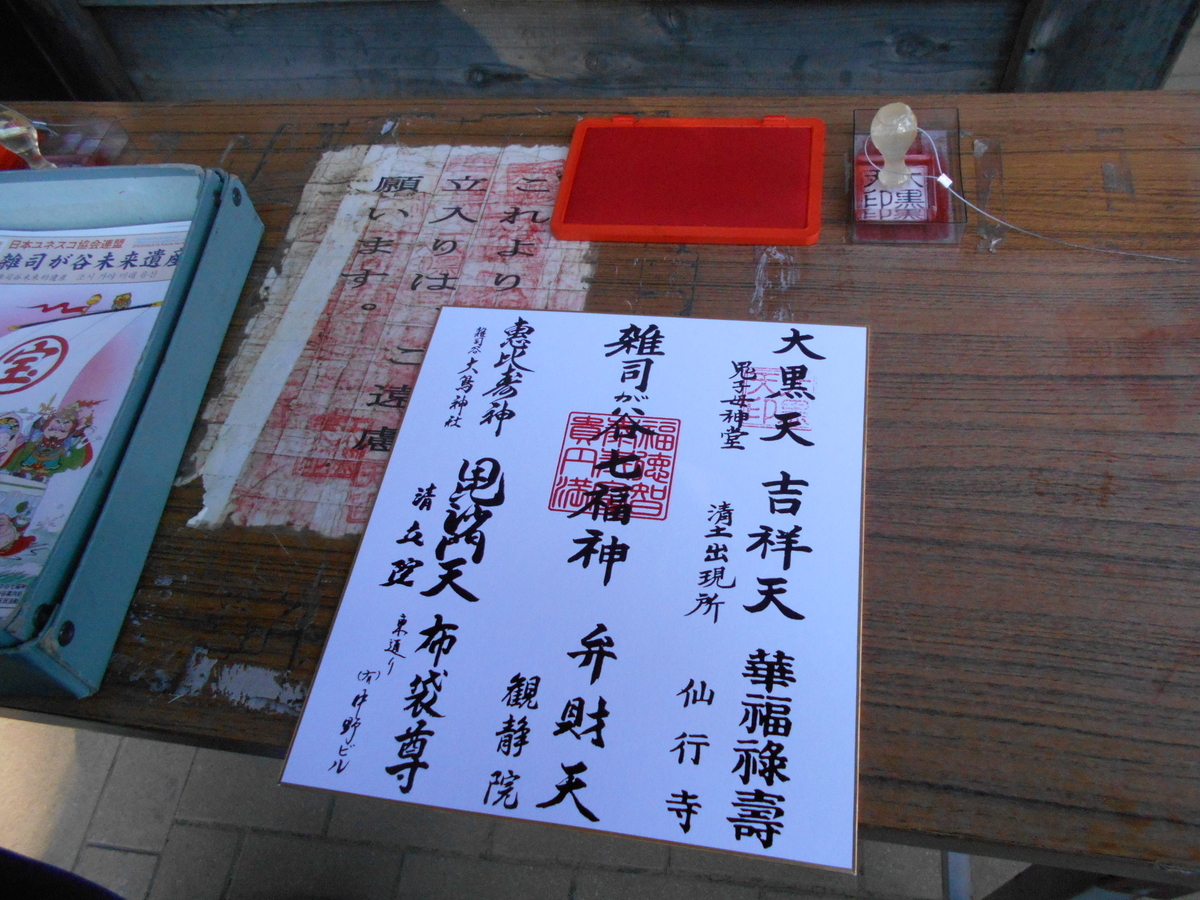 日本ユネスコ協会連盟
雑司が谷未来遺産
宝
これより
立入りは
ご遠慮
願います。
大黒
天印
大黒天
鬼子母神堂
吉祥天
清土出現所
華福禄壽
仙行寺
雑司が谷七福神
福徳智
貴円満
弁財天
観静院
恵比寿神
雑司谷 大鳥神社
毘沙門天
清立院
布袋尊
東通り
(有)中野ビル